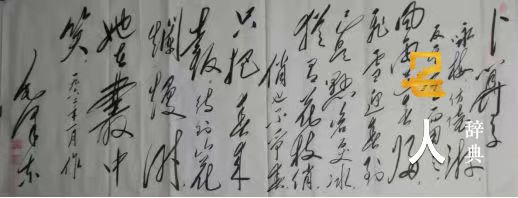 卜算子
咏梅
风雨送春归
飞雪迎春到
已是悬崖百丈冰
犹有花枝俏
俏也不争春
只把春来
报 待到山花
爛漫时
她在叢中
笑 一九六二年一月作
毛泽东
人
辞典